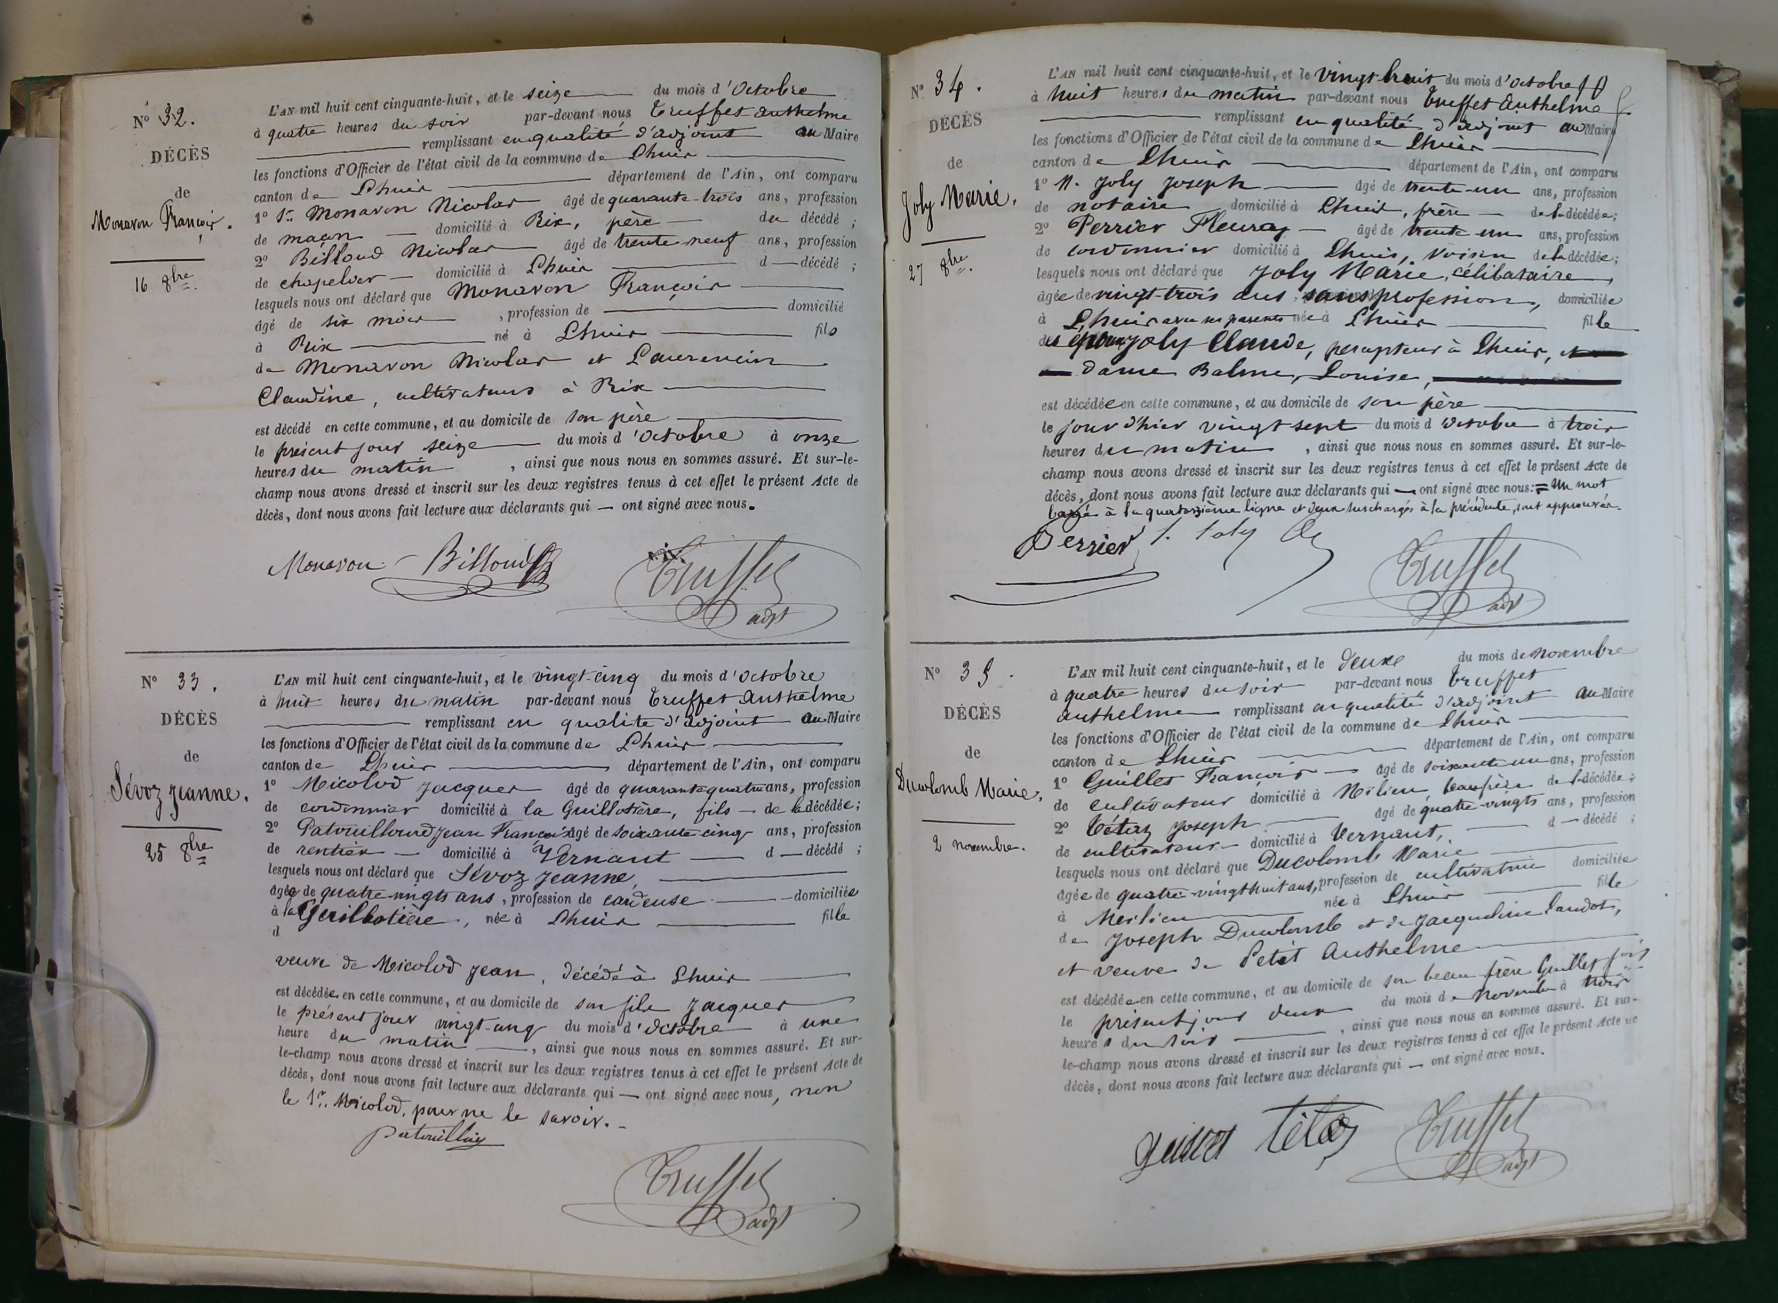 N° 32.
DÉCÈS
de
Monavon François.
16 8bre.
L'AN mil huit cent cinquante-huit, et le seize du mois d'Octobre
à quatre heures du soir par-devant nous Truffet Anthelme
remplissant en qualité d'adjoint au Maire
les fonctions d'Officier de l'état civil de la commune de Lhuis
canton de Lhuis département de l'Ain, ont comparu
1° Sr. Monavon Nicolas âgé de quarante-trois ans, profession
de maçon domicilié à Rix, père du décédé ;
2° Billoud Nicolas âgé de trente neuf ans, profession
de chapelier domicilié à Lhuis d décédé ;
lesquels nous ont déclaré que Monavon François
âgé de six mois , profession de domicilié
à Rix né à Lhuis fils
de Monavon Nicolas et Laurencin
Claudine, cultivateurs à Rix
est décédé en cette commune, et au domicile de son père
le présent jour seize du mois d'Octobre à onze
heures du matin , ainsi que nous nous en sommes assuré. Et sur-le-
champ nous avons dressé et inscrit sur les deux registres tenus à cet effet le présent Acte de
décès, dont nous avons fait lecture aux déclarants qui — ont signé avec nous.
Monavon Billoud Truffet
adjt
N° 33.
DÉCÈS
de
Sévoz Jeanne.
25 8bre
L'AN mil huit cent cinquante-huit, et le vingt-cinq du mois d'Octobre
à huit heures du matin par-devant nous Truffet Anthelme
remplissant en qualité d'adjoint au Maire
les fonctions d'Officier de l'état civil de la commune de Lhuis
canton de Lhuis département de l'Ain, ont comparu
1° Micolod Jacques âgé de quarante quatre ans, profession
de cordonnier domicilié à la Guillotière, fils de la décédée ;
2° Patouillard Jean François âgé de soixante-cinq ans, profession
de rentier domicilié à Vernant d — décédé ;
lesquels nous ont déclaré que Sévoz Jeanne,
âgée de quatre-vingts ans, profession de cardeuse domiciliée
à la Guillotière, née à Lhuis fille
d
veuve de Micolod Jean, décédé à Lhuis
est décédée en cette commune, et au domicile de son fils Jacques
le présent jour vingt-cinq du mois d'Octobre à une
heure du matin , ainsi que nous nous en sommes assuré. Et sur-
le-champ nous avons dressé et inscrit sur les deux registres tenus à cet effet le présent Acte de
décès, dont nous avons fait lecture aux déclarants qui — ont signé avec nous, non
le Sr. Micolod, pour ne le savoir.
Truffet
adjt
N° 34.
DÉCÈS
de
Joly Marie.
27 8bre.
L'AN mil huit cent cinquante-huit, et le vingt-huit du mois d'Octobre
à huit heures du matin par-devant nous Truffet Anthelme
remplissant en qualité d'adjoint au Maire
les fonctions d'Officier de l'état civil de la commune de Lhuis
canton de Lhuis département de l'Ain, ont comparu
1° M. Joly Joseph âgé de trente-un ans, profession
de notaire domicilié à Lhuis, frère de la décédée ;
2° Perrier Fleury âgé de trente-un ans, profession
de cordonnier domicilié à Lhuis, voisin de la décédée ;
lesquels nous ont déclaré que Joly Marie, célibataire,
âgée de vingt-trois ans, sans profession, domiciliée
à Lhuis avec ses parents née à Lhuis fille
des époux Joly Claude, percepteur à Lhuis, et
dame Balme, Louise,
est décédée en cette commune, et au domicile de son père
le jour d'hier vingt sept du mois d'Octobre à trois
heures du matin , ainsi que nous nous en sommes assuré. Et sur-le-
champ nous avons dressé et inscrit sur les deux registres tenus à cet effet le présent Acte de
décès, dont nous avons fait lecture aux déclarants qui — ont signé avec nous: = Un mot
à la quatorzième ligne et deux surchargés à la précédente, sont approuvés.
Perrier J. Joly Truffet
adjt
N° 35.
DÉCÈS
de
Ducolomb Marie.
2 novembre.
L'AN mil huit cent cinquante-huit, et le deux du mois de novembre
à quatre heures du soir par-devant nous Truffet
Anthelme remplissant en qualité d'adjoint au Maire
les fonctions d'Officier de l'état civil de la commune de Lhuis
canton de Lhuis département de l'Ain, ont comparu
1° Guillet François âgé de soixante un ans, profession
de cultivateur domicilié à Milieu, beau frère de la décédée ;
2° Tétaz Joseph âgé de quatre-vingts ans, profession
de cultivateur domicilié à Vernant, d — décédé ;
lesquels nous ont déclaré que Ducolomb Marie
âgée de quatre-vingt huit ans, profession de cultivatrice domiciliée
à Milieu née à Lhuis fille
de Joseph Ducolomb et de Jacqueline
et veuve de Petit Anthelme
est décédée en cette commune, et au domicile de son beau frère Guillet fois
le présent jour deux du mois de Novembre à trois
heures du soir , ainsi que nous nous en sommes assuré. Et sur-
le-champ nous avons dressé et inscrit sur les deux registres tenus à cet effet le présent Acte de
décès, dont nous avons fait lecture aux déclarants qui — ont signé avec nous.
Guillet Tétaz Truffet
adjt